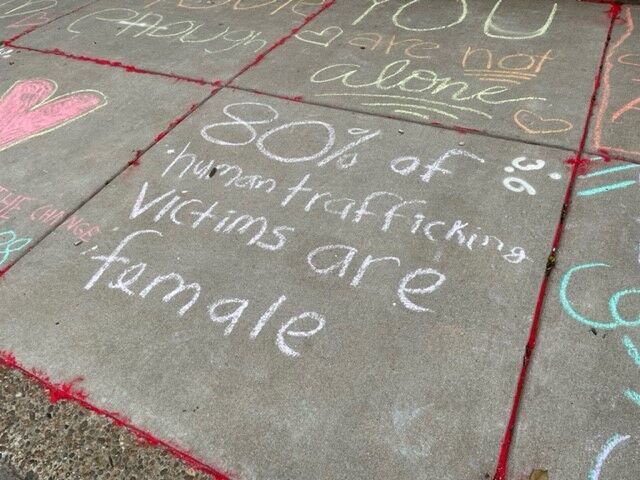 enough
YOU
are not
alone
80% of
human trafficking
victims are
female
3:6
THE CHANGE